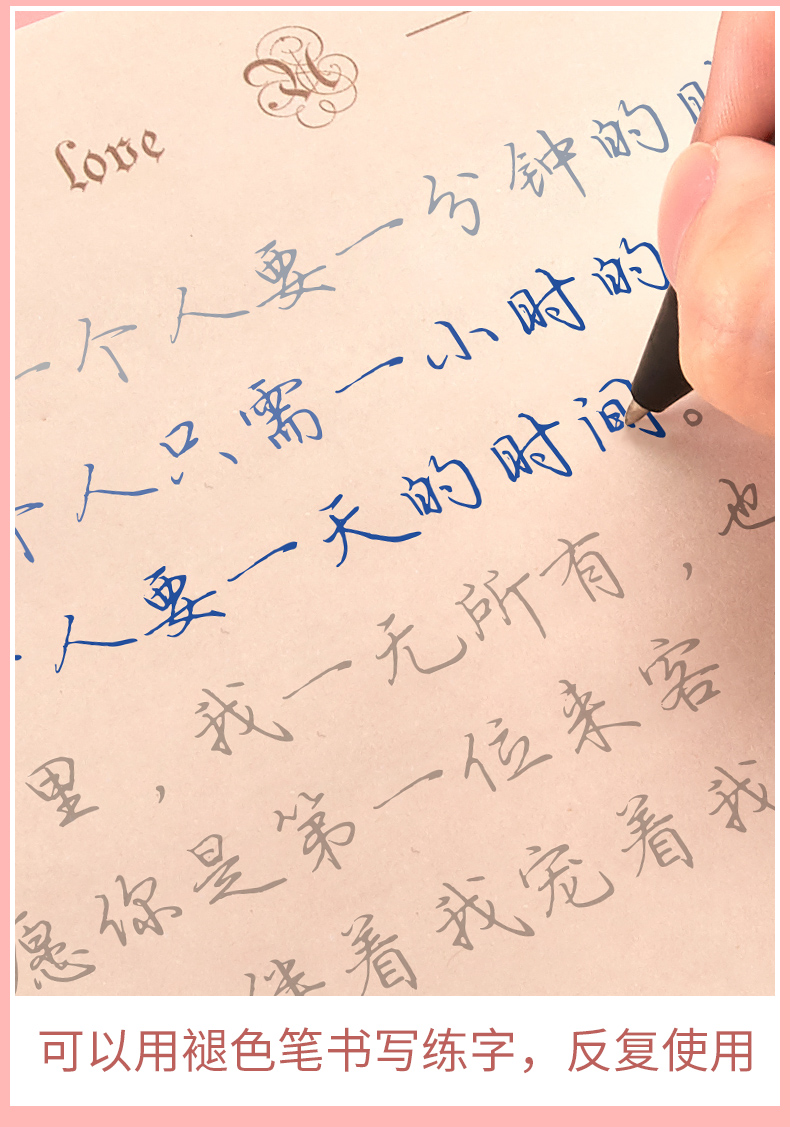 love
一个人要一分钟的时
个人只需一小时的
人要一天的时间。
里，我一无所有，也
愿你是第一位来客
伴着我宠着我
可以用褪色笔书写练字，反复使用